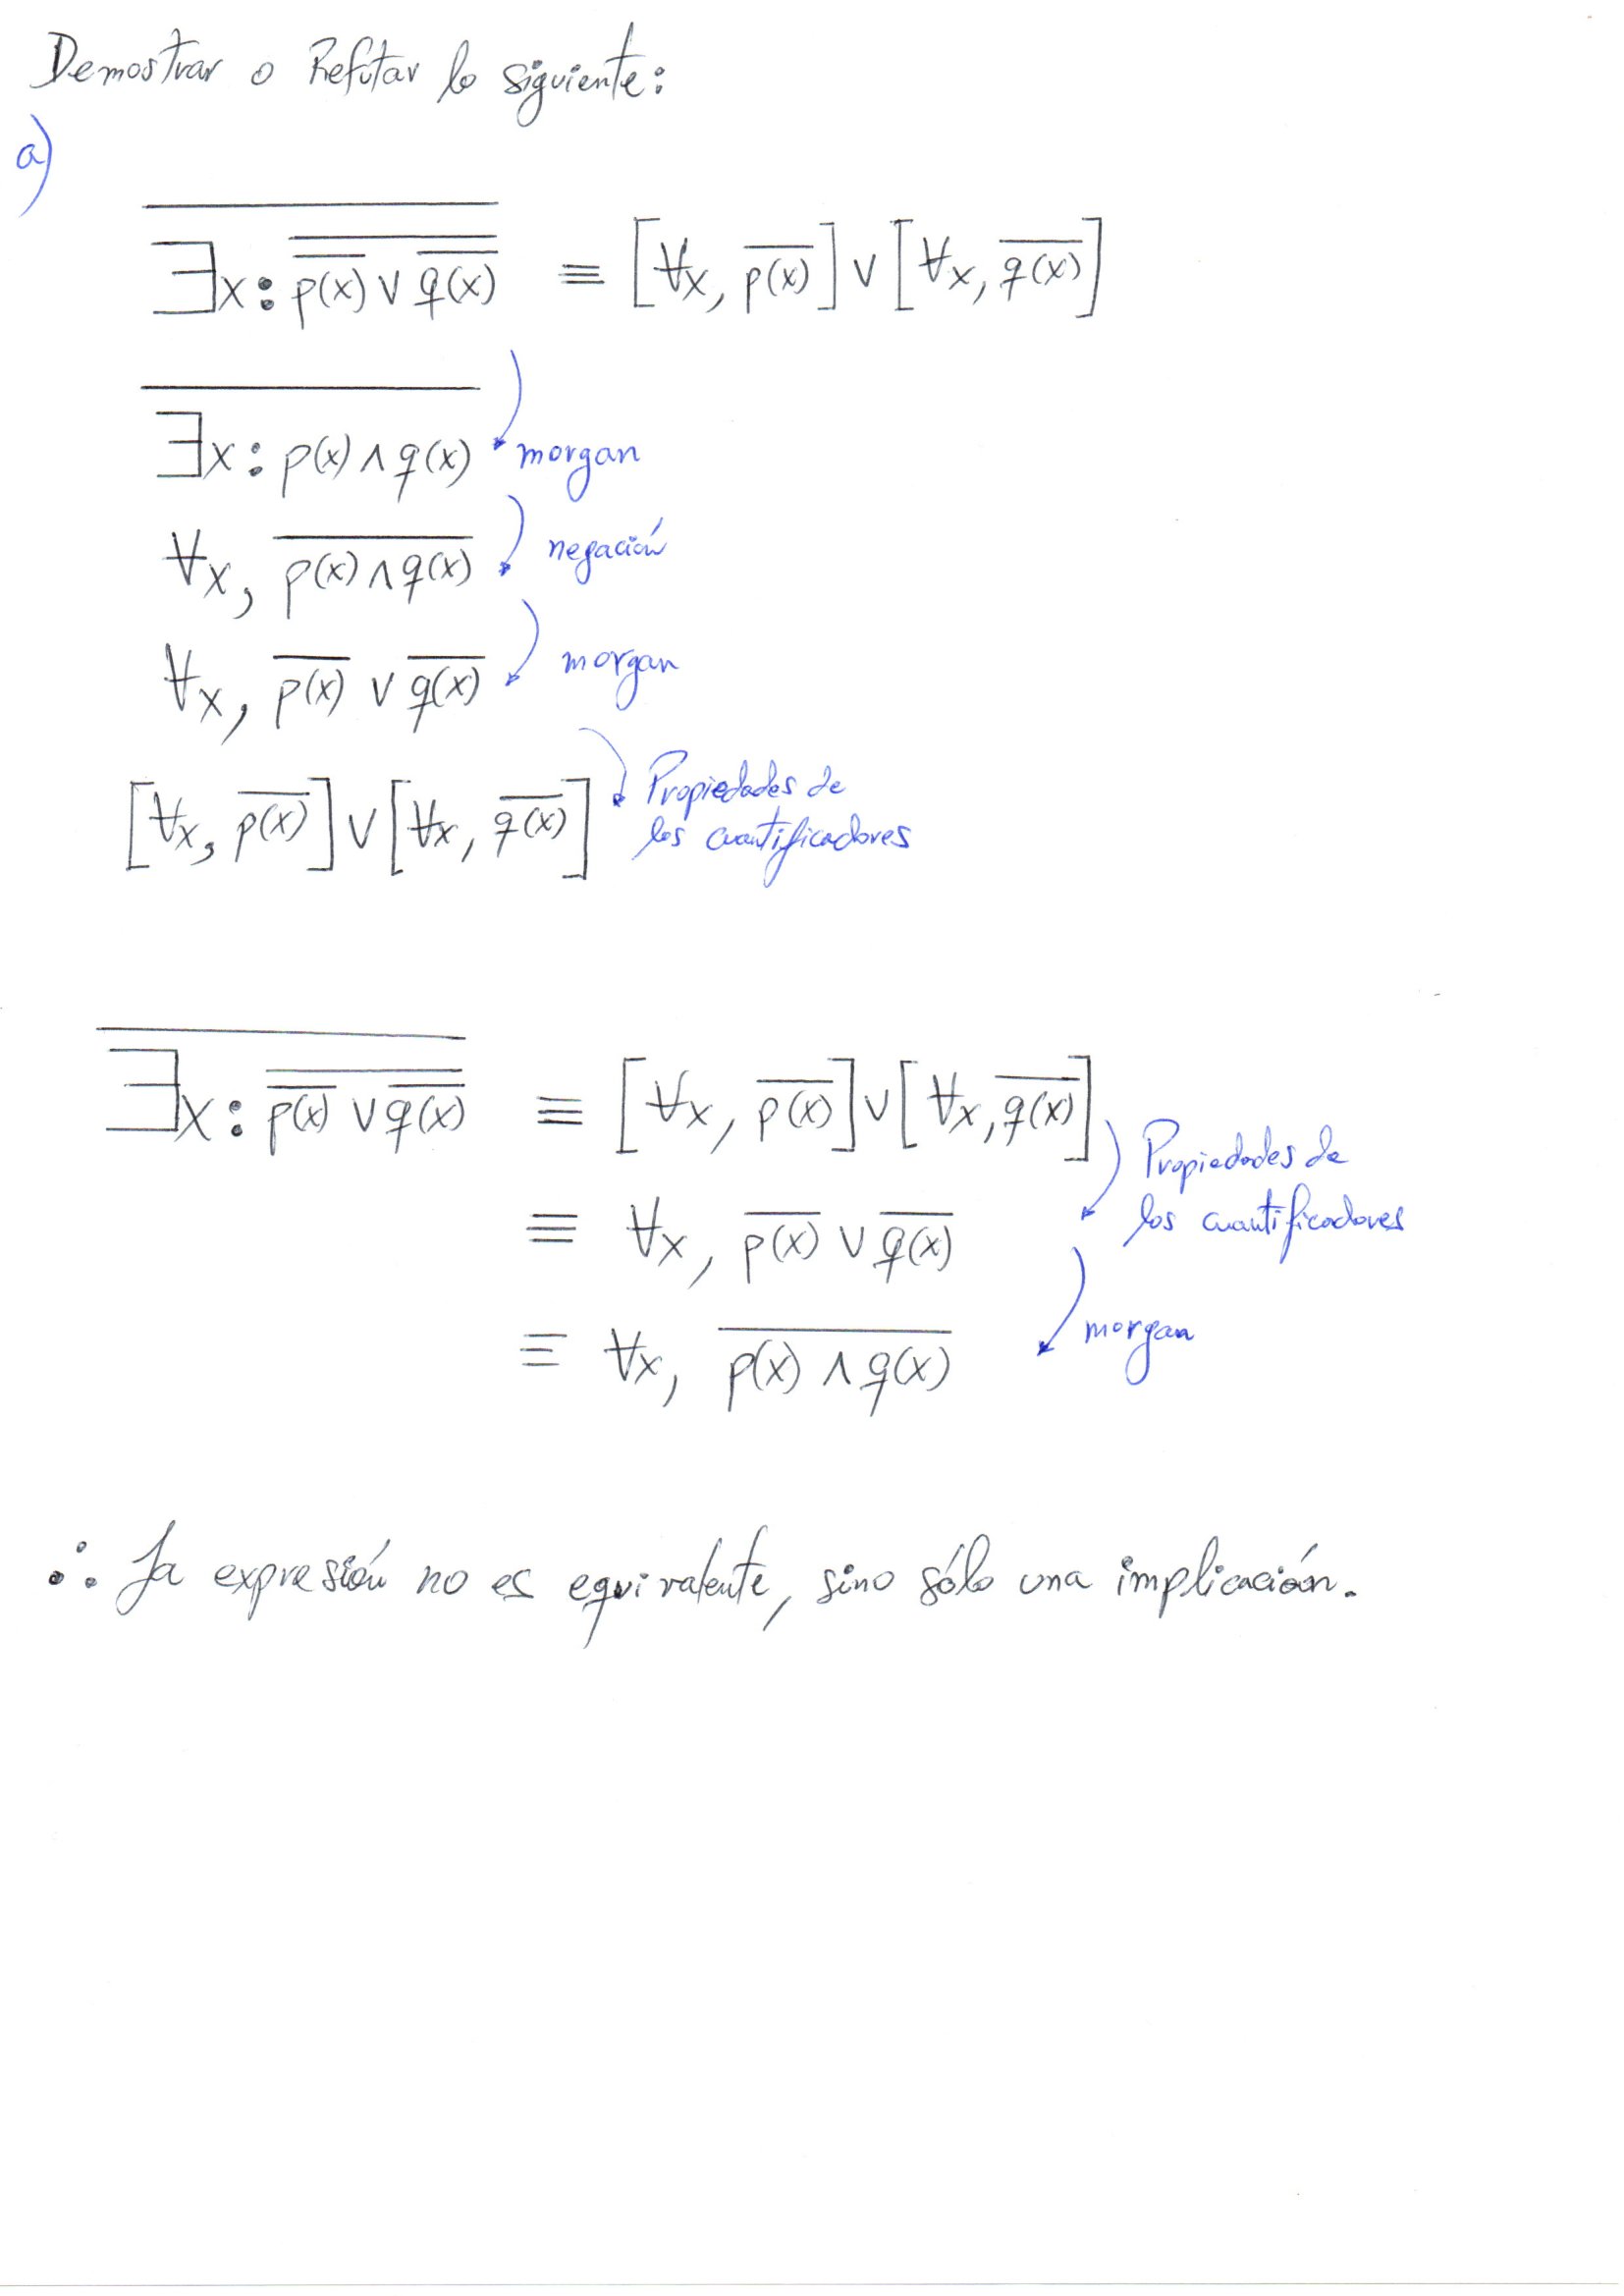 Demostrar o Refutar lo siguiente:
a)
$\overline{\exists x: \overline{\overline{p(x)} \vee \overline{q(x)}}} \equiv [\forall x, \overline{p(x)}] \vee [\forall x, \overline{q(x)}]$
$\overline{\exists x: p(x) \wedge q(x)}$ morgan
$\forall x, \overline{p(x) \wedge q(x)}$ negación
$\forall x, \overline{p(x)} \vee \overline{q(x)}$ morgan
$[\forall x, \overline{p(x)}] \vee [\forall x, \overline{q(x)}]$ Propiedades de
los cuantificadores
$\overline{\exists x: \overline{\overline{p(x)} \vee \overline{q(x)}}} \equiv [\forall x, \overline{p(x)}] \vee [\forall x, \overline{q(x)}]$
Propiedades de
$\equiv \forall x, \overline{p(x)} \vee \overline{q(x)}$ los cuantificadores
$\equiv \forall x, \overline{p(x) \wedge q(x)}$ morgan
∴ La expresión no es equivalente, sino sólo una implicación.